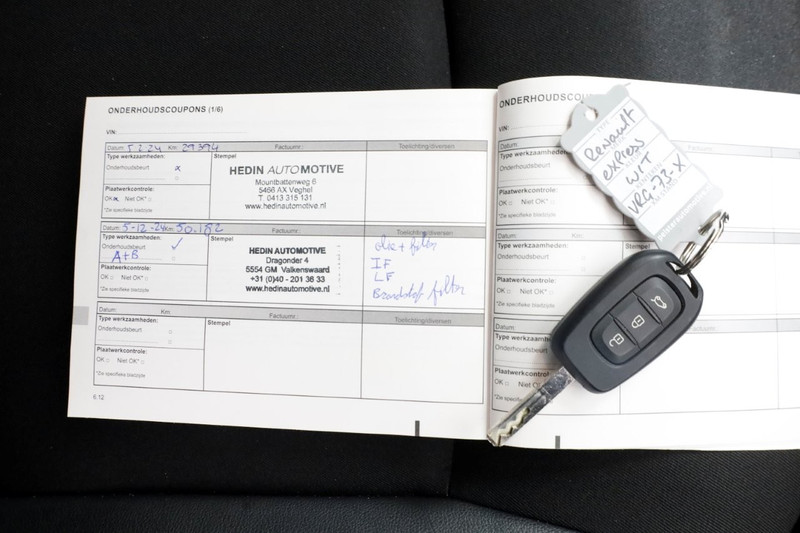 ONDERHOUDSCOUPONS (1/6)
VIN:
Datum: 5 2 24 Km: 29394 Factuurnr.: Toelichting/diversen
Type werkzaamheden: Stempel
Onderhoudsbeurt x
Plaatwerkcontrole:
OK x Niet OK*
*Zie specifieke bladzijde
HEDIN AUTOMOTIVE
Mountbattenweg 6
5466 AX Veghel
T. 0413 315 131
www.hedinautomotive.nl
Datum: 5-12-24 Km: 50.182 Factuurnr.: Toelichting/diversen
Type werkzaamheden: Stempel
Onderhoudsbeurt ✓
A+B
Plaatwerkcontrole:
OK Niet OK*
*Zie specifieke bladzijde
HEDIN AUTOMOTIVE
Dragonder 4
5554 GM Valkenswaard
+31 (0)40 - 201 36 33
www.hedinautomotive.nl
olie + filter
IF
LF
Brandstof filter
Datum: Km: Factuurnr.: Toelichting/diversen
Type werkzaamheden: Stempel
Onderhoudsbeurt
Plaatwerkcontrole:
OK Niet OK*
*Zie specifieke bladzijde
6.12
ONDERHOUDSCOU
VIN:
Datum:
Type werkzaam
Onderhoudsbeurt
Plaatwerkcontrole:
OK Niet OK*
*Zie specifieke bladzijde
Datum:
Type werkzaamheden:
Onderhoudsbeurt
Plaatwerkcontrole:
OK Niet OK*
*Zie specifieke bladzijde
Datum:
Type werkz
Onderhoudsbeurt
Plaatwerkcontrole:
OK Niet OK*
*Zie specifieke
Renault
express
WIT
VRG-33-X